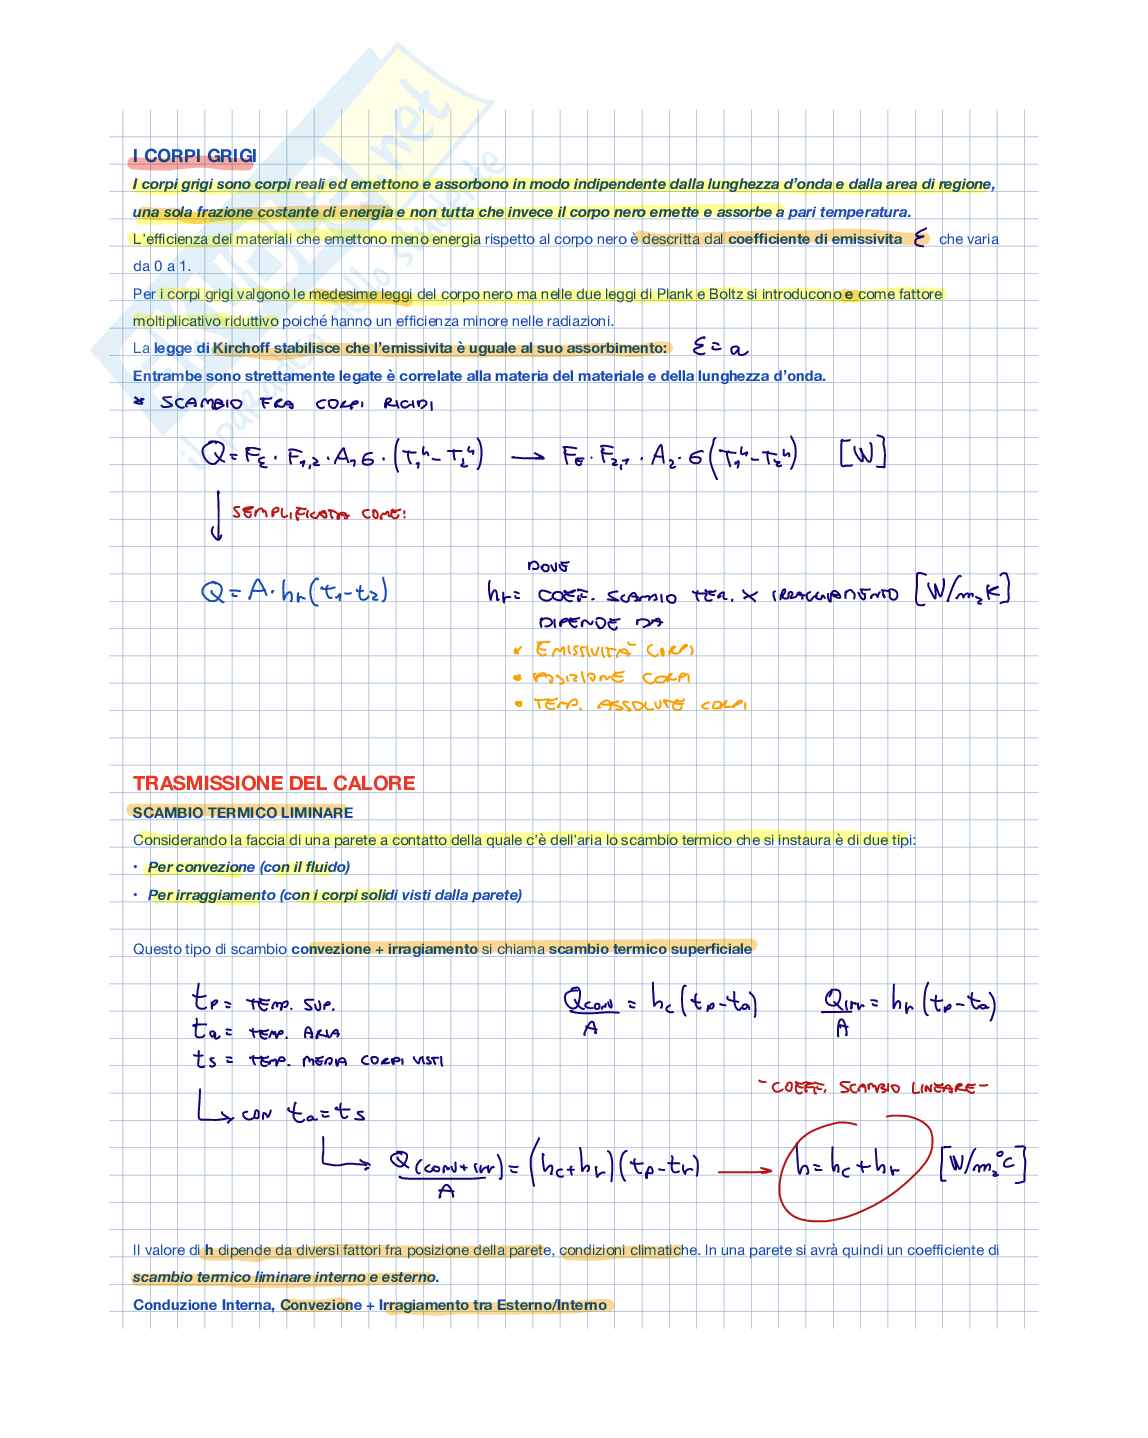 I CORPI GRIGI
I corpi grigi sono corpi reali ed emettono e assorbono in modo indipendente dalla lunghezza d'onda e dalla area di regione,
una sola frazione costante di energia e non tutta che invece il corpo nero emette e assorbe a pari temperatura.
L'efficienza dei materiali che emettono meno energia rispetto al corpo nero è descritta dal coefficiente di emissivita ε che varia
da 0 a 1.
Per i corpi grigi valgono le medesime leggi del corpo nero ma nelle due leggi di Plank e Boltz si introducono e come fattore
moltiplicativo riduttivo poiché hanno un efficienza minore nelle radiazioni.
La legge di Kirchoff stabilisce che l'emissivita è uguale al suo assorbimento: ε = a
Entrambe sono strettamente legate è correlate alla materia del materiale e della lunghezza d'onda.
* SCAMBIO FRA CORPI RIGIDI
Q = Fε · F1,2 · A1 σ · (T1⁴ - T2⁴) → Fε · F2,1 · A2 · σ (T1⁴ - T2⁴) [W]
↓ SEMPLIFICATA COME:
DOVE
Q = A · hr (t1 - t2) hr = COEF. SCAMBIO TER. X IRRAGGIAMENTO [W/m2 K]
DIPENDE DA
• EMISSIVITÀ CORPI
• POSIZIONE CORPI
• TEMP. ASSOLUTE CORPI
TRASMISSIONE DEL CALORE
SCAMBIO TERMICO LIMINARE
Considerando la faccia di una parete a contatto della quale c'è dell'aria lo scambio termico che si instaura è di due tipi:
• Per convezione (con il fluido)
• Per irraggiamento (con i corpi solidi visti dalla parete)
Questo tipo di scambio convezione + irragiamento si chiama scambio termico superficiale
tp = TEMP. SUP. Qconv/A = hc (tp - ta) Qirr/A = hr (tp - ta)
ta = TEMP. ARIA
ts = TEMP. MEDIA CORPI VISTI
- COEFF. SCAMBIO LINEARE -
↳ CON ta = ts
↳ Q(conv + irr)/A = (hc + hr)(tp - tr) → h = hc + hr [W/m2 °C]
Il valore di h dipende da diversi fattori fra posizione della parete, condizioni climatiche. In una parete si avrà quindi un coefficiente di
scambio termico liminare interno e esterno.
Conduzione Interna, Convezione + Irragiamento tra Esterno/Interno